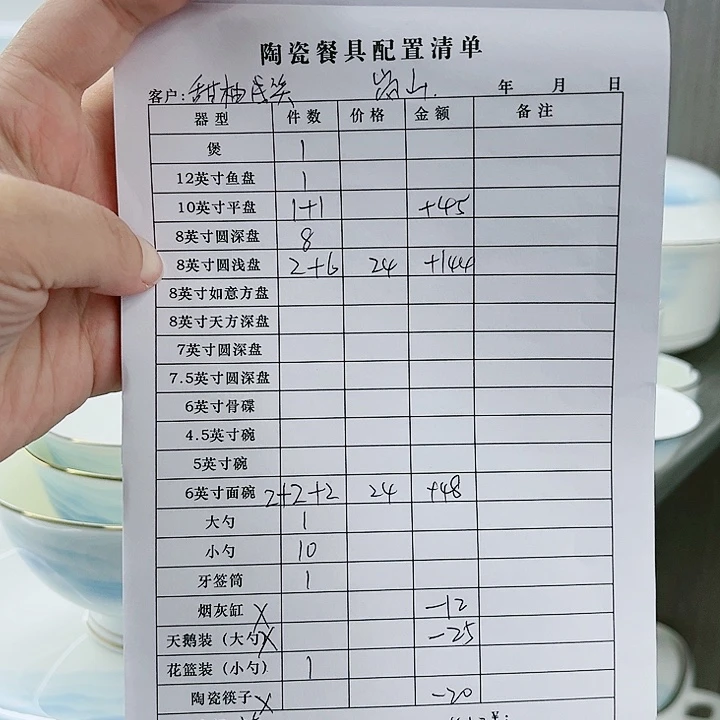 陶瓷餐具配置清单
客户: 甜柚 岩山. 年 月 日
器型 件数 价格 金额 备注
煲 1
12英寸鱼盘 1
10英寸平盘 1+1 +45
8英寸圆深盘 8
8英寸圆浅盘 2+6 24 +144
8英寸如意方盘
8英寸天方深盘
7英寸圆深盘
7.5英寸圆深盘
6英寸骨碟
4.5英寸碗
5英寸碗
6英寸面碗 2+2+2 24 +48
大勺 1
小勺 10
牙签筒 1
烟灰缸 X -12
天鹅装（大勺） X -25
花篮装（小勺） 1
陶瓷筷子 X -20